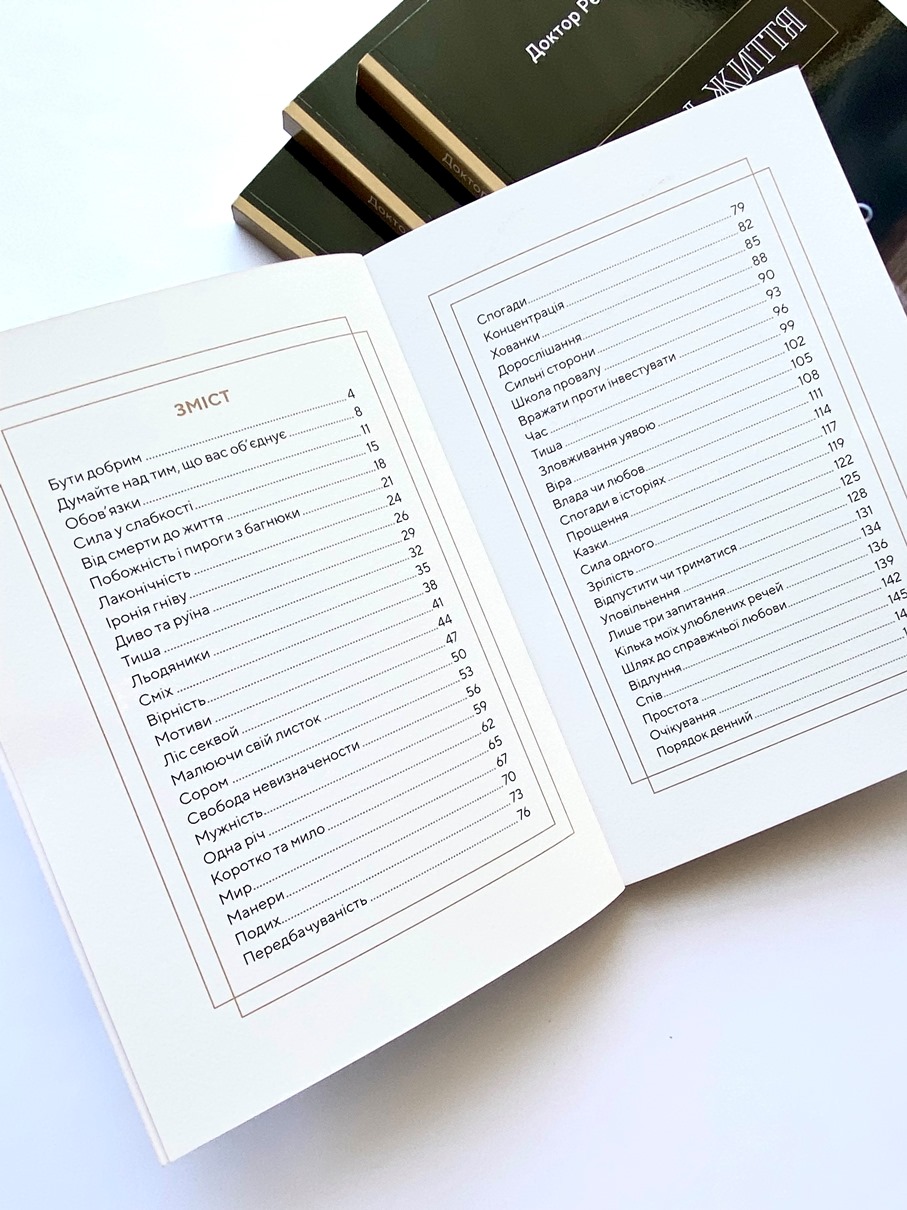 Доктор
ЖИТТЯ
Доктор
Доктор
ЗМІСТ
Бути добрим 4
Думайте над тим, що вас об'єднує 8
Обов'язки 11
Сила у слабкості 15
Від смерти до життя 18
Побожність і пироги з багнюки 21
Лаконічність 24
Іронія гніву 26
Диво та руїна 29
Тиша 32
Льодяники 35
Сміх 38
Вірність 41
Мотиви 44
Ліс секвой 47
Малюючи свій листок 50
Сором 53
Свобода невизначености 56
Мужність 59
Одна річ 62
Коротко та мило 65
Мир 67
Манери 70
Подих 73
Передбачуваність 76
Спогади 79
Концентрація 82
Хованки 85
Дорослішання 88
Сильні сторони 90
Школа провалу 93
Вражати проти інвестувати 96
Час 99
Тиша 102
Зловживання уявою 105
Віра 108
Влада чи любов 111
Спогади в історіях 114
Прощення 117
Казки 119
Сила одного 122
Зрілість 125
Відпустити чи триматися 128
Уповільнення 131
Лише три запитання 134
Кілька моїх улюблених речей 136
Шлях до справжньої любови 139
Відлуння 142
Спів 145
Простота
Очікування
Порядок денний